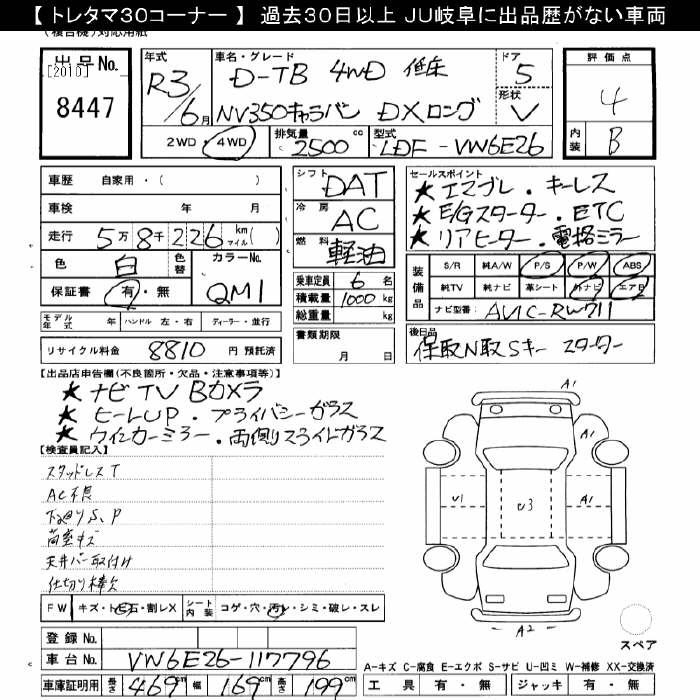 【 トレタマ30コーナー 】 過去30日以上 JU岐阜に出品歴がない車両
(複合機)対応用紙
出品No.
[2010]
8447
年式
R3/6月
車名・グレード
D-TB 4WD 低床
NV350キャラバン DXロング
ドア
5
形状
V
評価点
4
内装
B
2WD・4WD
排気量
2500cc
型式
LDF-VW6E26
車歴 自家用・( )
車検 年 月
走行 5万8千226 km マイル( )
色 白 色替 カラーNo.
保証書 有・無 QM1
モデル年式 年 ハンドル 左・右 ディーラー・並行
リサイクル料金 8810 円 預託済
シフト DAT
冷房 AC
燃料 軽油
乗車定員 6 名
積載量 1000 kg
総重量 kg
書類期限
月 日
セールスポイント
★エマブレ・キーレス
★E/Gスターター・ETC
★リアヒーター・電格ミラー
装備品 S/R 純A/W P/S P/W ABS
純TV 純ナビ 革シート 外ナビ エアB
ナビ型番 AVIC-RW711
後日品
保取N取Sキー スターター
【出品店申告欄(不良箇所・欠品・注意事項等)】
★ナビTV Bカメラ
★ヒールUP・プライバシーガラス
★ウインカーミラー・両側スライドガラス
【検査員記入】
スタッドレスT
AC不良
下廻りS、P
荷室キズ
天井バー取付け
仕切り棒欠
FW キズ・トビ石・割レX シート内装 コゲ・穴・汚レ・シミ・破レ・スレ
A1
A1
U1
U3
A1
A2
スペア
登録No.
車台No. VW6E26-117796
車庫証明用 長さ 469cm 幅 169cm 高さ 199cm
A-キズ C-腐食 E-エクボ S-サビ U-凹ミ W-補修 XX-交換済
工具 有・無 ジャッキ 有・無